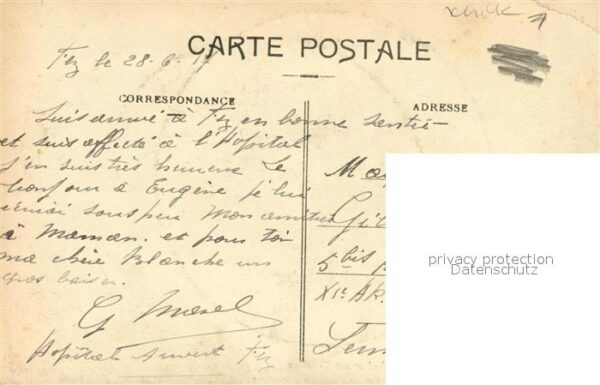 CARTE POSTALE
Fez le 28-6-17
CORRESPONDANCE
ADRESSE
Suis arrivé à Fez en bonne santé
et suis affecté à l'Hopital
j'en suis très heureux Le
bonjour à Eugène je lui
sous peu Mon
à Maman. et pour toi
ma chère Blanche un
gros baiser.
G Morel
Hopital Fez
5 bis
XIe AR
privacy protection
Datenschutz